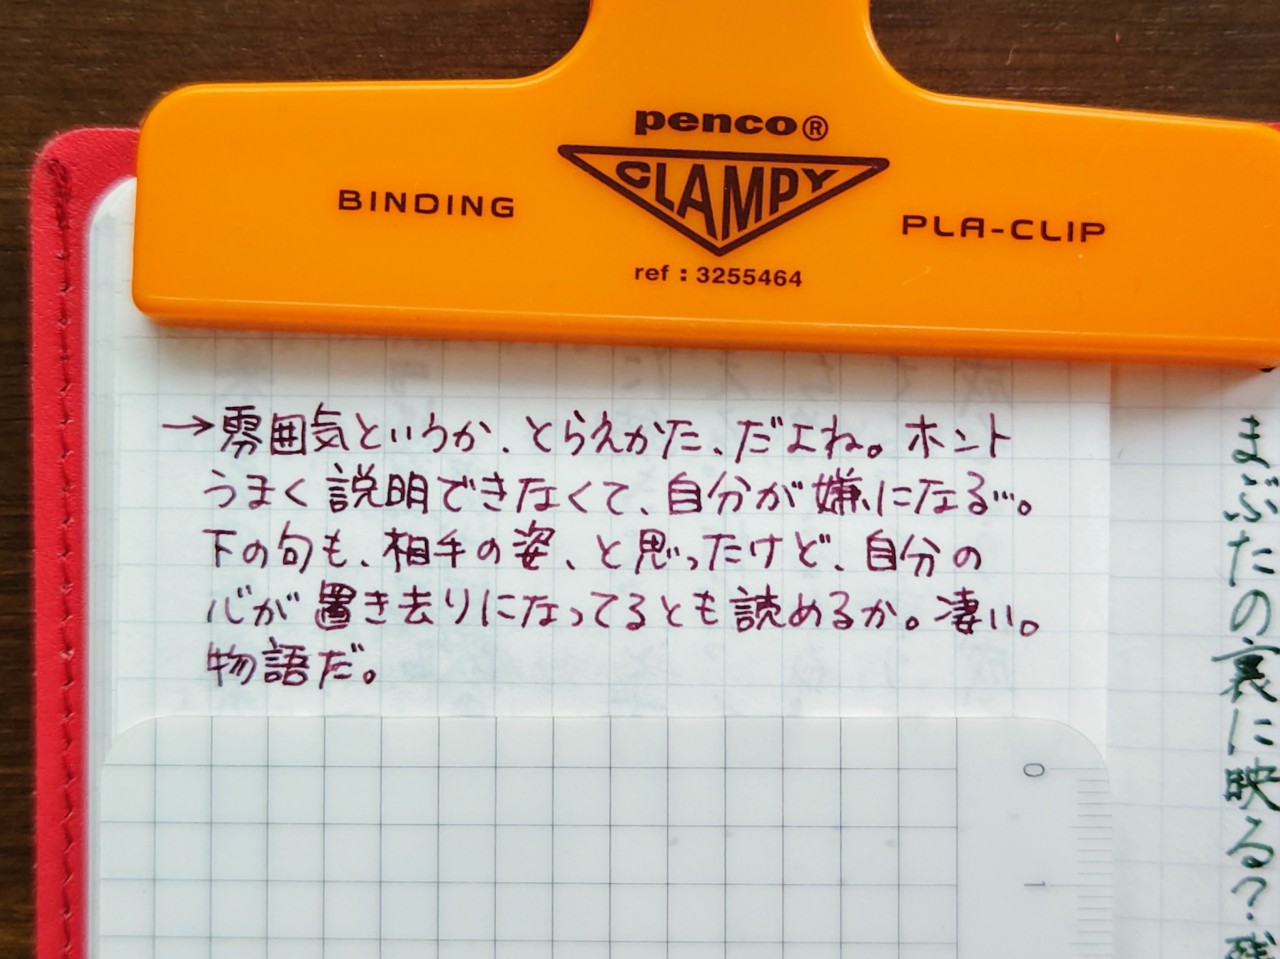 penco®
CLAMPY
BINDING
PLA-CLIP
ref : 3255464
→雰囲気というか、とらえかた、だよね。ホント
うまく説明できなくて、自分が嫌になる…。
下の句も、相手の姿、と思ったけど、自分の
心が置き去りになってるとも読めるか。凄い。
物語だ。
0
1
まぶたの裏に映る?